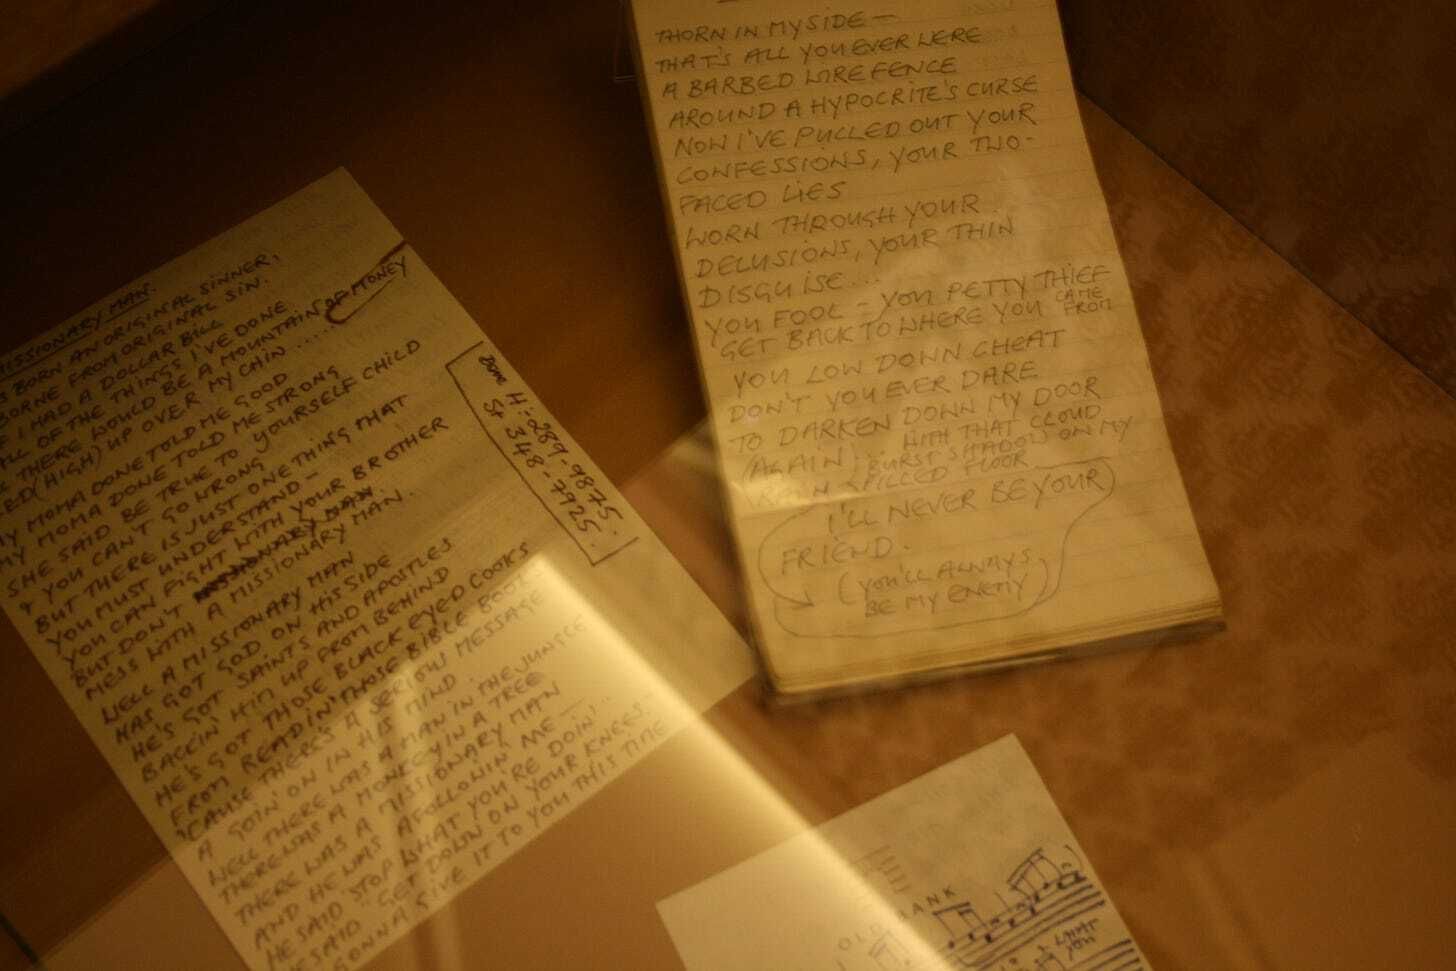 MISSIONARY MAN.
BORN AN ORIGINAL SINNER,
BORNE FROM ORIGINAL SIN.
IF I HAD A DOLLAR BILL
ALL OF THE THINGS I'VE DONE
THERE WOULD BE A MOUNTAIN OF MONEY
(HIGH) UP OVER MY CHIN ....
MY MOMA DONE TOLD ME GOOD
MY MOMA DONE TOLD ME STRONG
SHE SAID BE TRUE TO YOURSELF CHILD
& YOU CAN'T GO WRONG
BUT THERE IS JUST ONE THING THAT
YOU MUST UNDERSTAND -
YOU CAN FIGHT WITH YOUR BROTHER
BUT DON'T
MESS WITH A MISSIONARY MAN.
WELL A MISSIONARY MAN
HAS GOT GOD ON HIS SIDE
HE'S GOT SAINTS AND APOSTLES
BACKIN' HIM UP FROM BEHIND
HE'S GOT THOSE BLACK EYED COOKS
FROM READIN' THOSE BIBLE BOOKS
'CAUSE THERE'S A SERIOUS MESSAGE
A GOIN' ON IN HIS MIND
WELL THERE WAS A MAN IN THE JUNGLE
THERE WAS A MONKEY IN A TREE
THERE WAS A MISSIONARY MAN
AND HE WAS A FOLLOWIN' ME -
HE SAID STOP WHAT YOU'RE DOIN'...
HE SAID "GET DOWN ON YOUR KNEES
GONNA GIVE IT TO YOU THIS TIME
H:- 289.9875.
St 348.7925.
THORN IN MY SIDE -
THAT'S ALL YOU EVER WERE
A BARBED WIRE FENCE
AROUND A HYPOCRITE'S CURSE
NOW I'VE PULLED OUT YOUR
CONFESSIONS, YOUR TWO-
FACED LIES
WORN THROUGH YOUR
DELUSIONS, YOUR THIN
DISGUISE...
YOU FOOL - YOU PETTY THIEF
GET BACK TO WHERE YOU CAME FROM
YOU LOW DOWN CHEAT
DON'T YOU EVER DARE
TO DARKEN DOWN MY DOOR
(AGAIN)... WITH THAT CLOUD
BURST SHADOW ON MY
RAIN SPILLED FLOOR
I'LL NEVER BE YOUR
FRIEND.
(YOU'LL ALWAYS
BE MY ENEMY)
WHAT
YOU